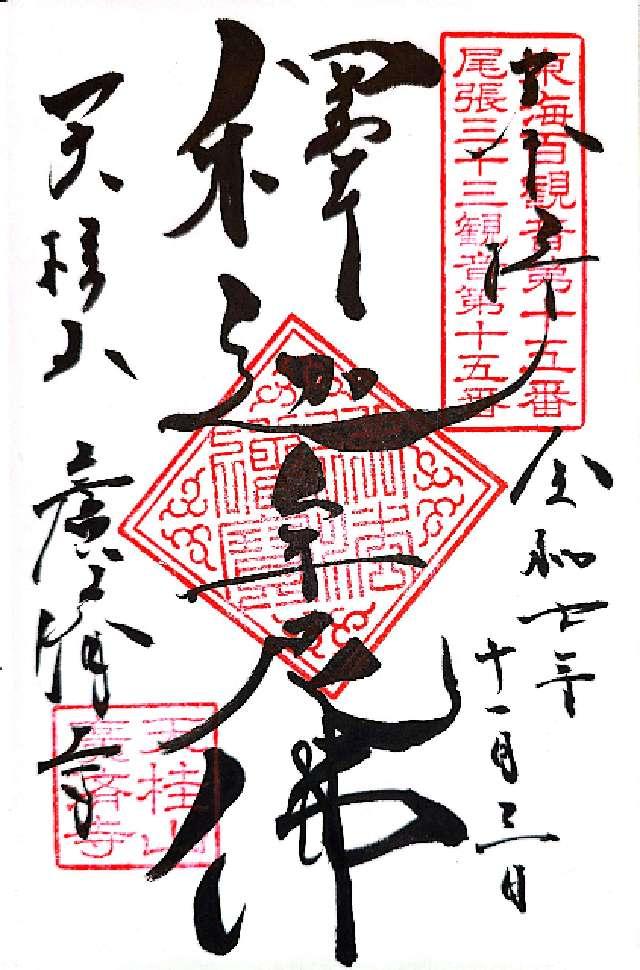 奉拝
東海百観音第十五番
尾張三十三観音第十五番
令和七年
十一月三日
釋迦牟尼佛
佛法僧寶
天桂山
廣済寺
天桂山
廣済寺